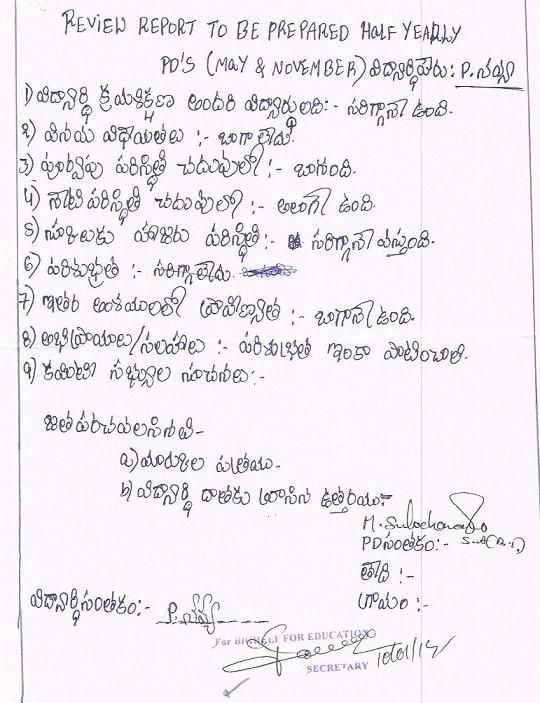 REVIEW REPORT TO BE PREPARED HALF YEARLY
PD'S (MAY & NOVEMBER) విద్యార్థిపేరు: P. నవ్య
1) విద్యార్థి క్రమశిక్షణా అందరి విద్యార్థులది:- సరిగ్గానే ఉంది.
2) వినయ విధేయతలు :- బాగాలేదు.
3) పూర్వపు పరిస్థితి చదువులో :- బాగుంది.
4) నేటి పరిస్థితి చదువులో :- అలాగే ఉంది.
5) స్కూలుకు హాజరు పరిస్థితి:- సరిగ్గానే వస్తుంది.
6) పరిశుభ్రత :- సరిగ్గాలేదు.
7) ఇతర అంశములలో ప్రావిణ్యత :- బాగానే ఉంది.
8) అభిప్రాయాలు/సలహాలు :- పరిశుభ్రత ఇంకా పాటించాలి.
9) కమిటి సభ్యుల సూచనలు:-
జతపరచవలసినవి-
a) మార్కుల పత్రము-
b) విద్యార్థి దాతకు వ్రాసిన ఉత్తరము:-
M. Sulochana
PDసంతకం:-
తేది :-
గ్రామం :-
విద్యార్థిసంతకం:- P. నవ్య
For BIGHELP FOR EDUCATION
SECRETARY 10/01/14